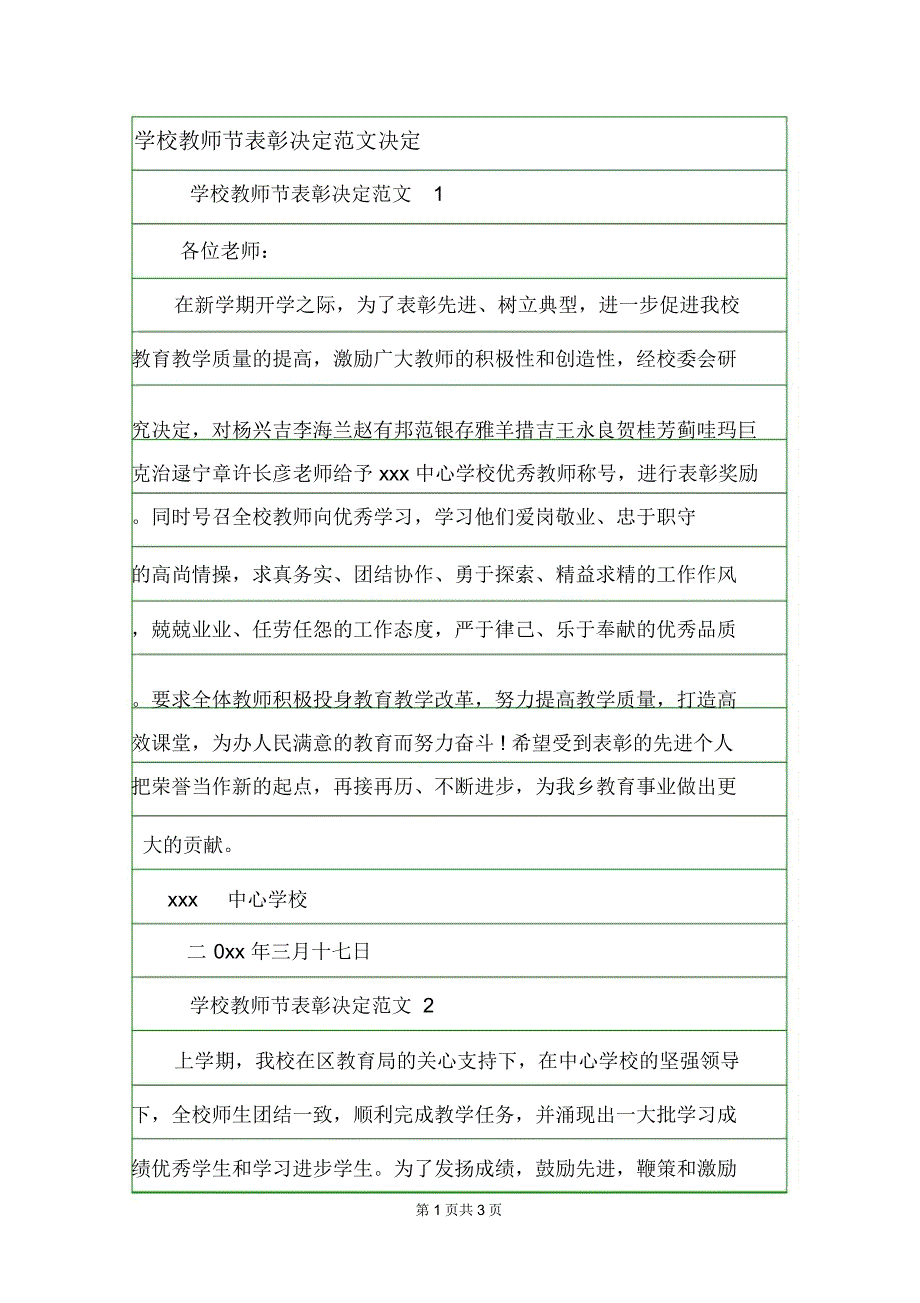 学校教师节表彰决定范文决定
学校教师节表彰决定范文 1
各位老师：
在新学期开学之际，为了表彰先进、树立典型，进一步促进我校
教育教学质量的提高，激励广大教师的积极性和创造性，经校委会研
究决定，对杨兴吉李海兰赵有邦范银存雅羊措吉王永良贺桂芳蓟哇玛巨
克治逯宁章许长彦老师给予 xxx 中心学校优秀教师称号，进行表彰奖励
。同时号召全校教师向优秀学习，学习他们爱岗敬业、忠于职守
的高尚情操，求真务实、团结协作、勇于探索、精益求精的工作作风
，兢兢业业、任劳任怨的工作态度，严于律己、乐于奉献的优秀品质
。要求全体教师积极投身教育教学改革，努力提高教学质量，打造高
效课堂，为办人民满意的教育而努力奋斗！希望受到表彰的先进个人
把荣誉当作新的起点，再接再历、不断进步，为我乡教育事业做出更
大的贡献。
xxx 中心学校
二 0xx 年三月十七日
学校教师节表彰决定范文 2
上学期，我校在区教育局的关心支持下，在中心学校的坚强领导
下，全校师生团结一致，顺利完成教学任务，并涌现出一大批学习成
绩优秀学生和学习进步学生。为了发扬成绩，鼓励先进，鞭策和激励
第 1 页共 3 页